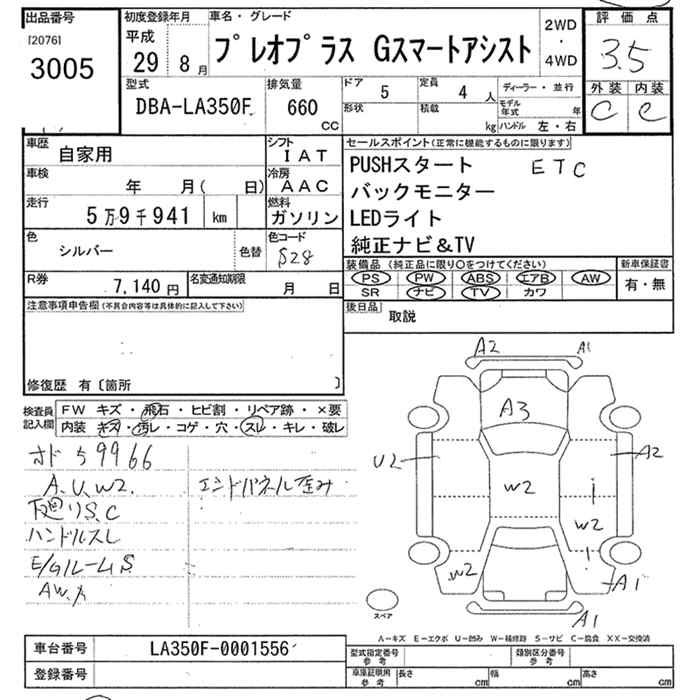 出品番号 初度登録年月 車名・グレード 2WD・4WD 評価点
[2076]
3005 平成 29 8月 プレオプラス Gスマートアシスト 3.5
型式 排気量 ドア 5 定員 4人 ディーラー・並行 外装 内装
DBA-LA350F 660 CC 形状 積載 kg モデル年式 年 ハンドル 左・右 C C
車歴 自家用 シフト IAT セールスポイント(正常に機能するものに限ります)
車検 年 月( 日) 冷房 AAC PUSHスタート ETC
走行 5万9千941 km 燃料 ガソリン バックモニター
LEDライト
色 シルバー 色替 色コード S28 純正ナビ&TV
R券 7,140円 名変通知期限 月 日 装備品(純正品に限り○をつけてください) 新車保証書
PS PW ABS エアB AW 有・無
SR ナビ TV カワ
注意事項申告欄(不具合内容等は具体的に記入して下さい) 後日品 取説
修復歴 有〔箇所 〕
検査員記入欄 FW キズ・飛石・ヒビ割・リペア跡・×要
内装 キズ・汚レ・コゲ・穴・スレ・キレ・破レ
オド 59966
A.U.W2. エンドパネル歪み
下廻りS.C
ハンドルスレ
E/GルームS
AW.
A2 A1
A3
U2 A2
W2
W2
W2 A1
A1
スペア
A−キズ E−エクボ U−凹み W−補修跡 S−サビ C−腐食 XX−交換済
車台番号 LA350F-0001556 型式指定番号 参考 類別区分番号 参考
登録番号 車庫証明用 参考 長さ cm 幅 cm 高さ cm